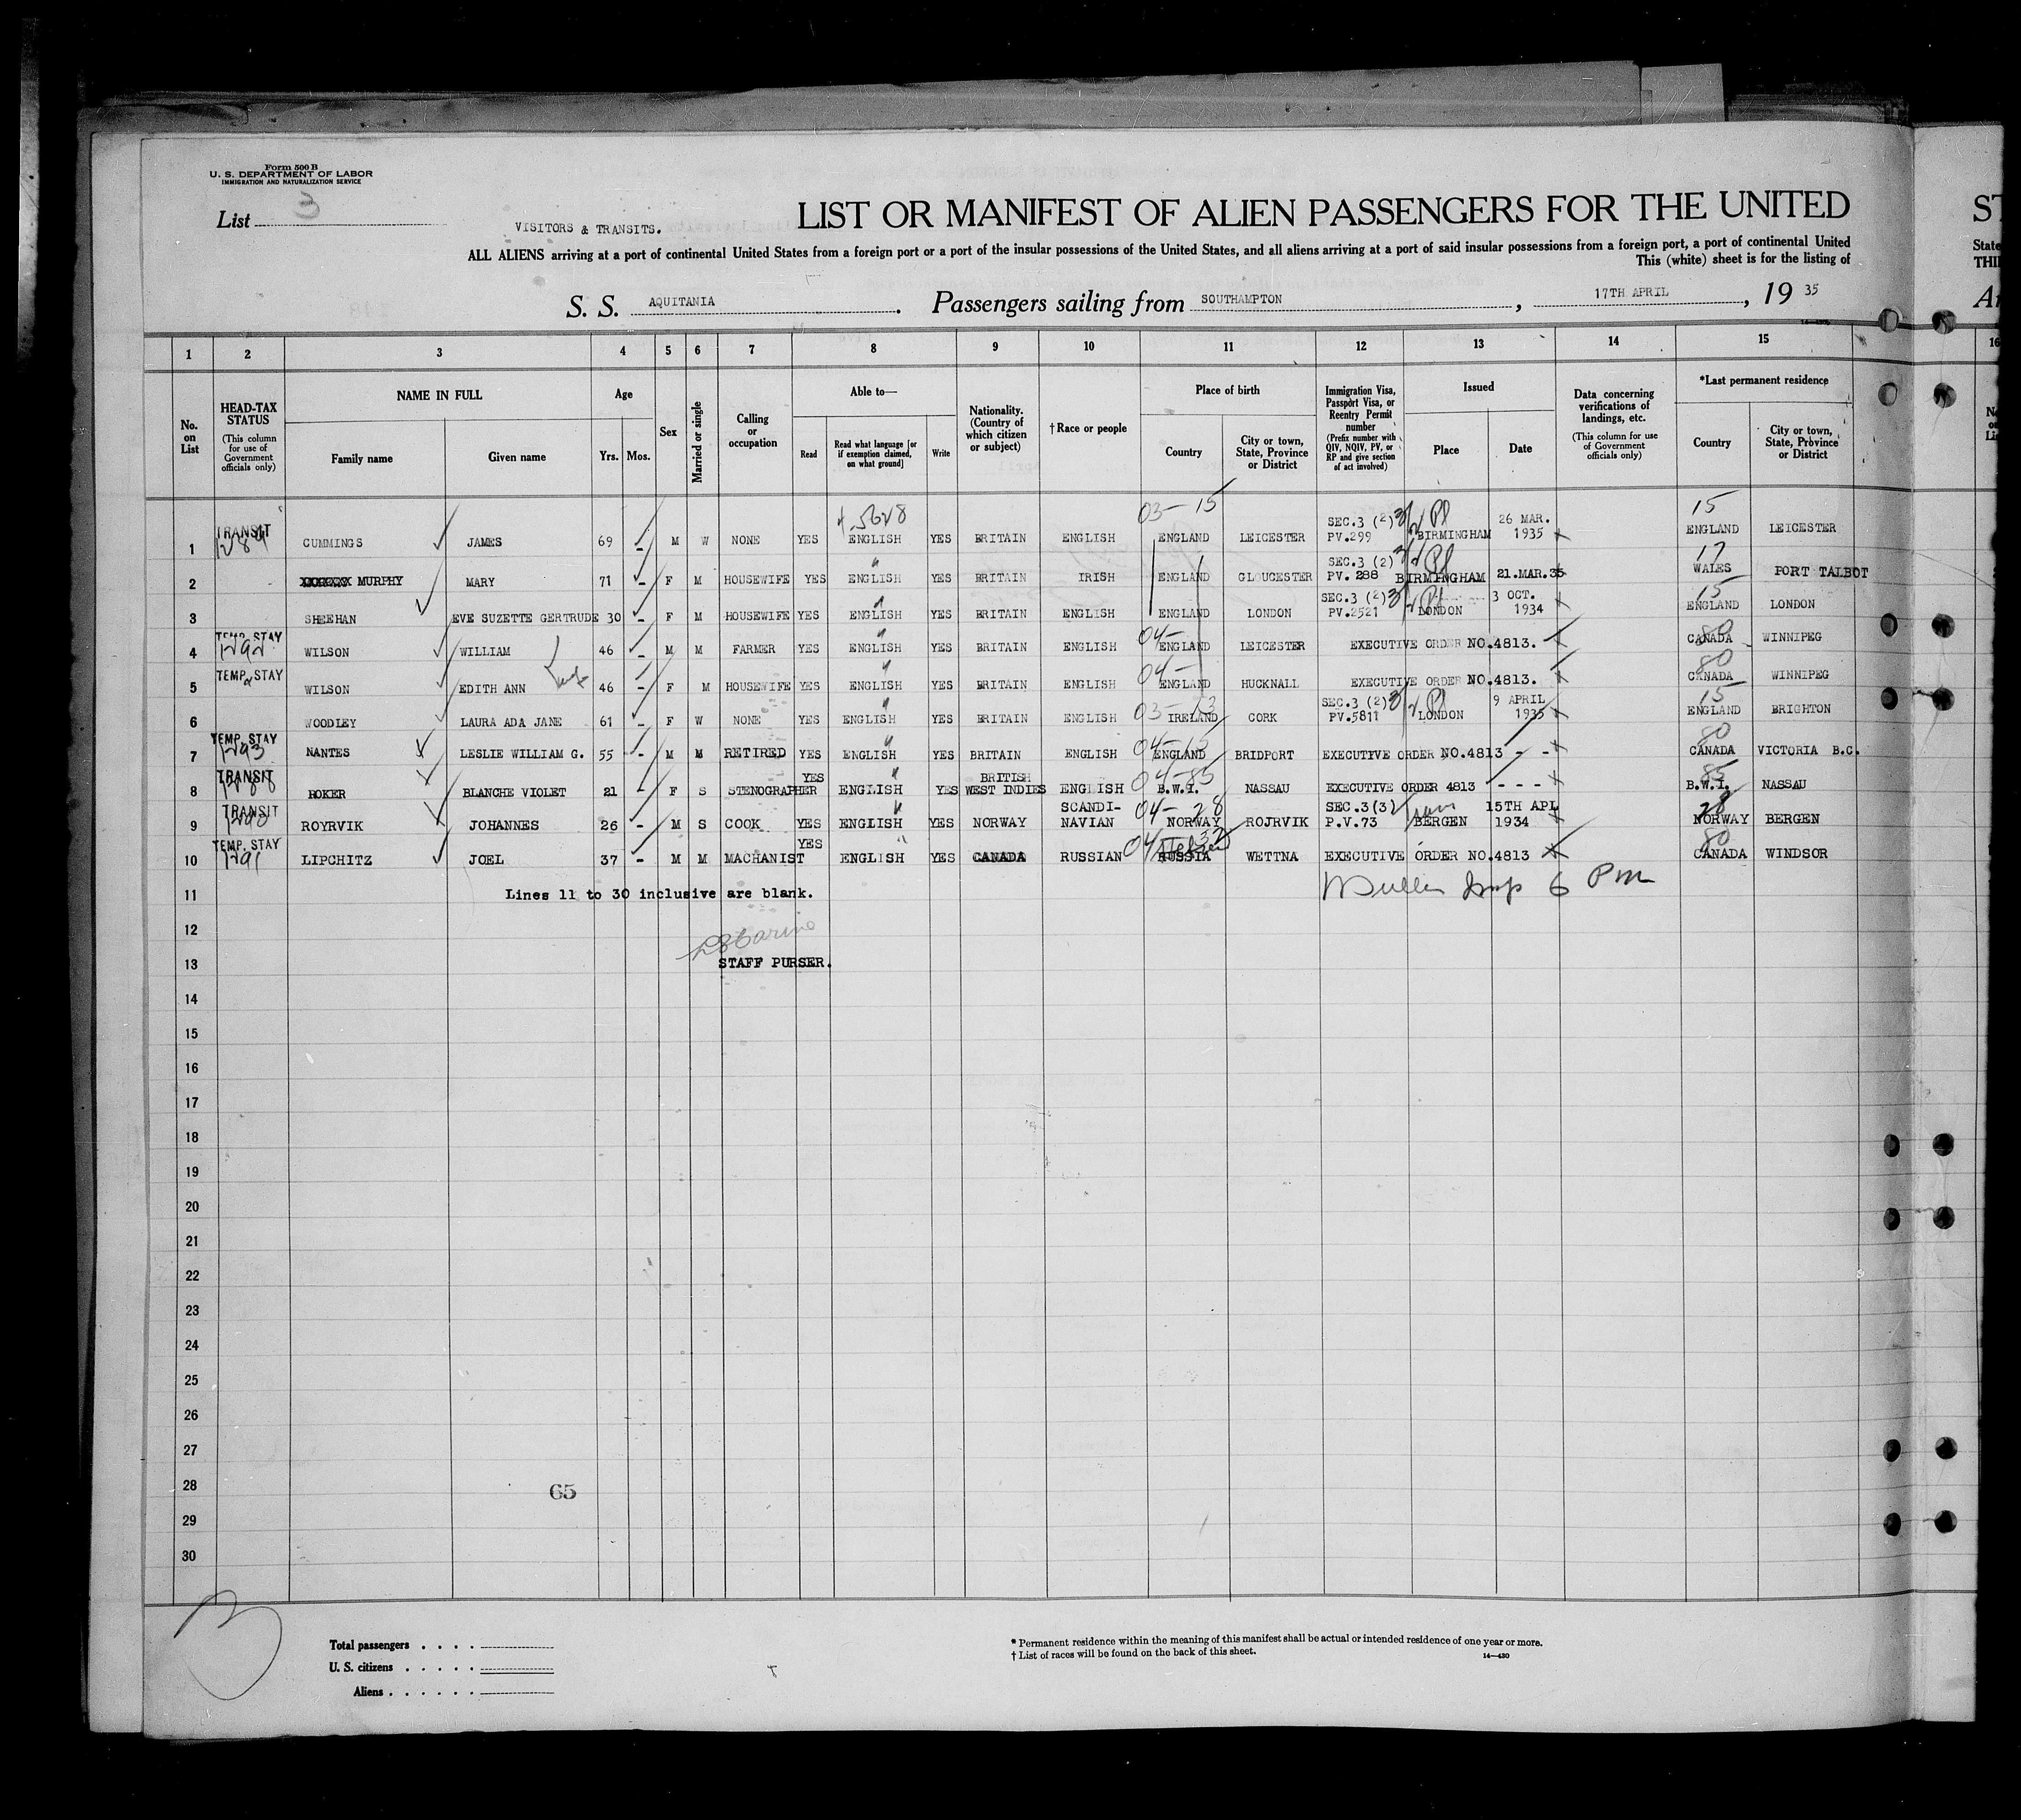 Form 500 B
U. S. DEPARTMENT OF LABOR
IMMIGRATION AND NATURALIZATION SERVICE
List 3
VISITORS & TRANSITS.
LIST OR MANIFEST OF ALIEN PASSENGERS FOR THE UNITED ST
ALL ALIENS arriving at a port of continental United States from a foreign port or a port of the insular possessions of the United States, and all aliens arriving at a port of said insular possessions from a foreign port, a port of continental United State
This (white) sheet is for the listing of THI
S. S. AQUITANIA. Passengers sailing from SOUTHAMPTON, 17TH APRIL, 19 35
1 2 3 4 5 6 7 8 9 10 11 12 13 14 15 16
No. on List
HEAD-TAX STATUS (This column for use of Government officials only)
NAME IN FULL
Family name
Given name
Age
Yrs. Mos.
Sex
Married or single
Calling or occupation
Able to—
Read
Read what language [or if exemption claimed, on what ground]
Write
Nationality. (Country of which citizen or subject)
†Race or people
Place of birth
Country
City or town, State, Province or District
Immigration Visa, Passport Visa, or Reentry Permit number (Prefix number with QIV, NQIV, PV, or RP and give section of act involved)
Issued
Place
Date
Data concerning verifications of landings, etc. (This column for use of Government officials only)
*Last permanent residence
Country
City or town, State, Province or District
03-15 15
1 TRANSIT CUMMINGS JAMES 69 - M W NONE YES ENGLISH YES BRITAIN ENGLISH ENGLAND LEICESTER SEC.3 (2) PV.299 BIRMINGHAM 26 MAR. 1935 ENGLAND LEICESTER
17
2 MURPHY MARY 71 - F M HOUSEWIFE YES ENGLISH YES BRITAIN IRISH ENGLAND GLOUCESTER SEC.3 (2) PV. 288 BIRMINGHAM 21.MAR.35 WALES PORT TALBOT
15
3 SHEEHAN EVE SUZETTE GERTRUDE 30 - F M HOUSEWIFE YES ENGLISH YES BRITAIN ENGLISH ENGLAND LONDON SEC.3 (2) PV.2521 LONDON 3 OCT. 1934 ENGLAND LONDON
04- 80
4 TEMP. STAY 1292 WILSON WILLIAM 46 - M M FARMER YES ENGLISH YES BRITAIN ENGLISH ENGLAND LEICESTER EXECUTIVE ORDER NO.4813. CANADA WINNIPEG
04- 80
5 TEMP. STAY WILSON EDITH ANN wife 46 - F M HOUSEWIFE YES ENGLISH YES BRITAIN ENGLISH ENGLAND HUCKNALL EXECUTIVE ORDER NO.4813. CANADA WINNIPEG
03-13 15
6 WOODLEY LAURA ADA JANE 61 - F W NONE YES ENGLISH YES BRITAIN ENGLISH IRELAND CORK SEC.3 (2) PV.5811 LONDON 9 APRIL 1935 ENGLAND BRIGHTON
04-15 80
7 TEMP. STAY 1293 NANTES LESLIE WILLIAM G. 55 - M M RETIRED YES ENGLISH YES BRITAIN ENGLISH ENGLAND BRIDPORT EXECUTIVE ORDER NO.4813 - - CANADA VICTORIA B.C.
04-85 85
8 TRANSIT 1288 ROKER BLANCHE VIOLET 21 - F S STENOGRAPHER YES ENGLISH YES BRITISH WEST INDIES ENGLISH B.W.I. NASSAU EXECUTIVE ORDER 4813 - - - - B.W.I. NASSAU
04-28 28
9 TRANSIT 1290 ROYRVIK JOHANNES 26 - M S COOK YES ENGLISH YES NORWAY SCANDI-NAVIAN NORWAY ROJRVIK SEC.3(3) P.V.73 BERGEN 15TH APL 1934 NORWAY BERGEN
04 32 80
10 TEMP. STAY 1291 LIPCHITZ JOEL 37 - M M MACHANIST YES ENGLISH YES CANADA RUSSIAN RUSSIA WETTNA EXECUTIVE ORDER NO.4813 CANADA WINDSOR
11 Lines 11 to 30 inclusive are blank. 6 Pm
12
13 STAFF PURSER.
14
15
16
17
18
19
20
21
22
23
24
25
26
27
28 65
29
30
3
Total passengers . . . .
U. S. citizens . . . . .
Aliens . . . . . .
* Permanent residence within the meaning of this manifest shall be actual or intended residence of one year or more.
† List of races will be found on the back of this sheet.
14—430